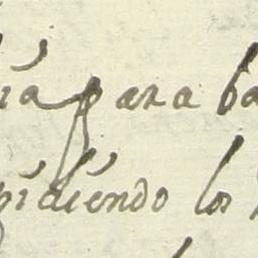 ia para ba
pidiendo los